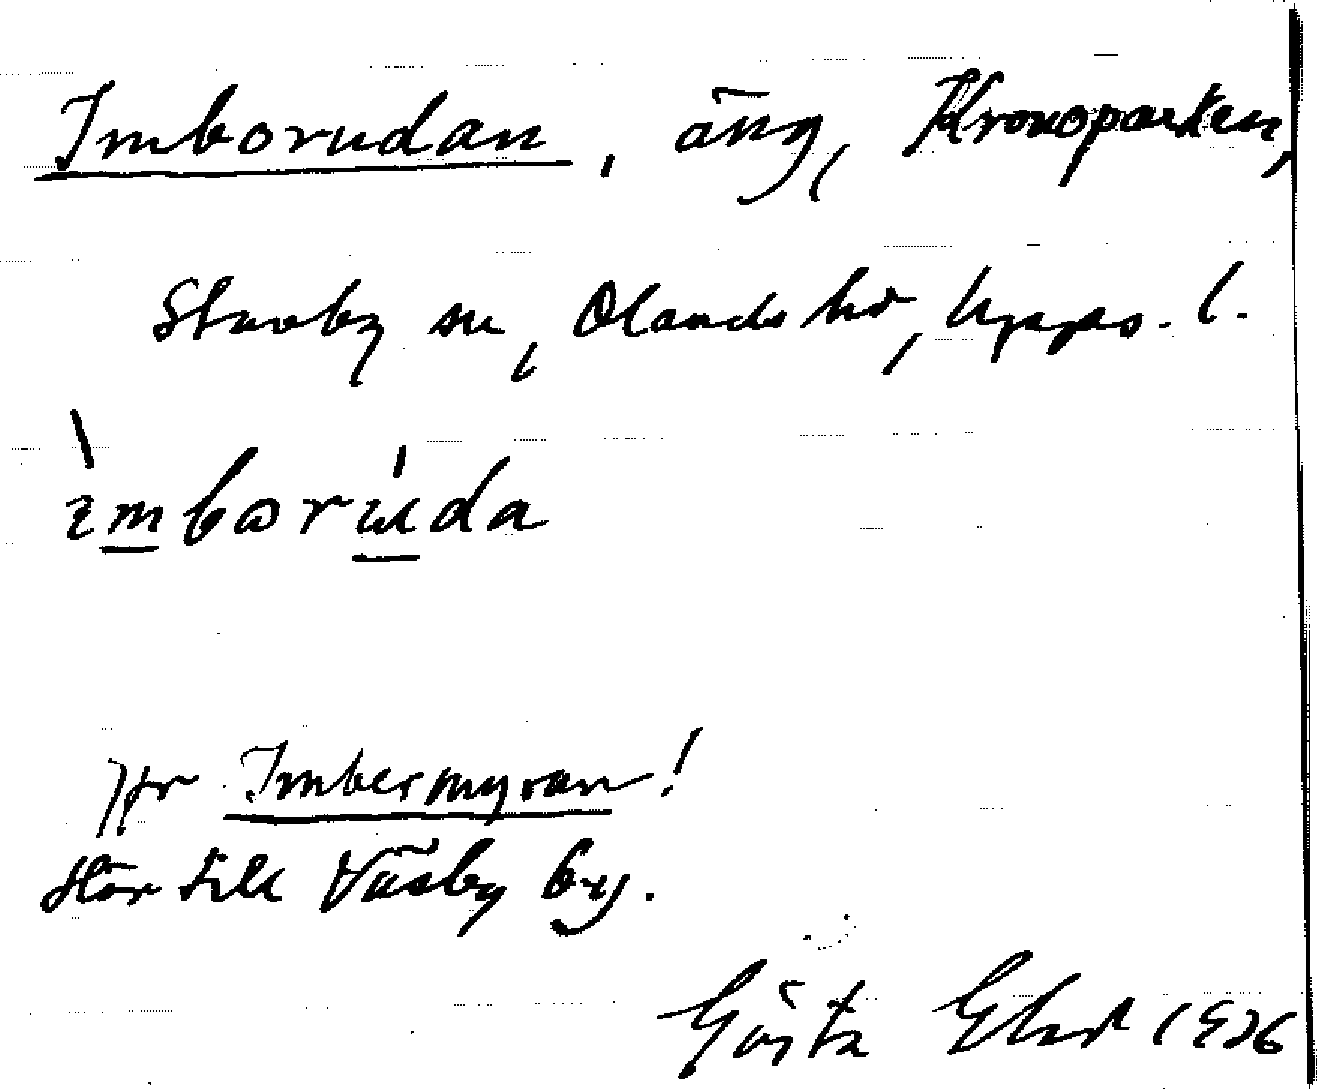 Imborudan, äng, Kronoparken,
Stavby sn, Olands hd, Upps. l.
ìmborúda
Jfr Imbermyran!
Hör till Väsby by.
Gösta 1926